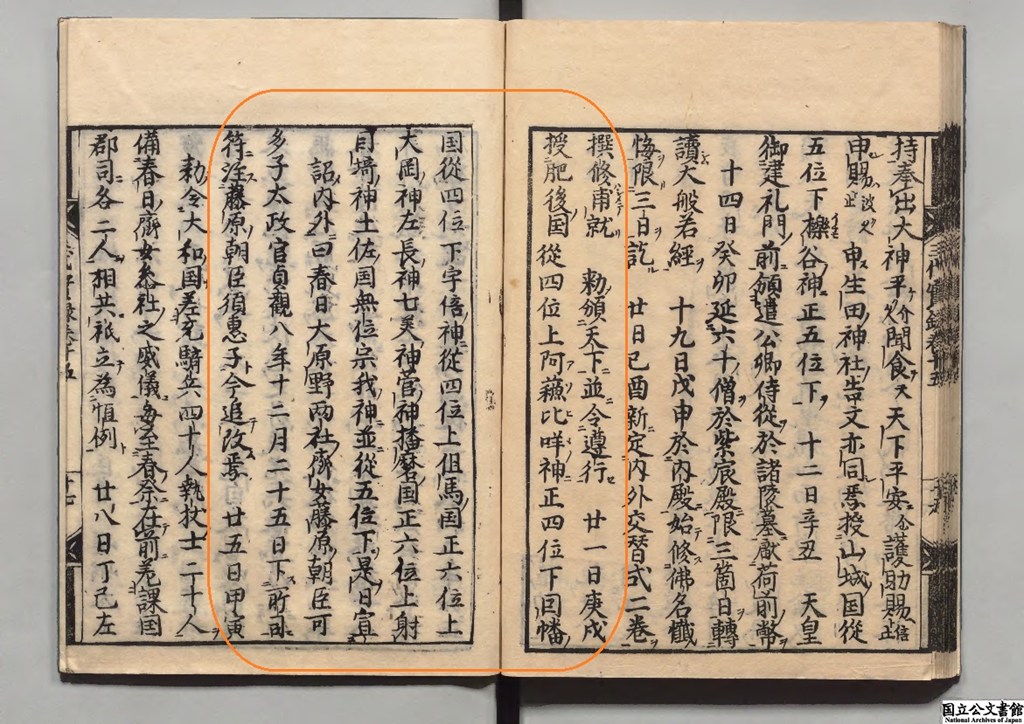 持奉出大神平介久聞食天天下平安介令護助賜倍止
申賜波久止申生田神社告文亦同焉授山城国従
五位下櫟谷神正五位下十二日辛丑天皇
御建礼門前頒遣公卿侍従於諸陵墓献荷前幣
十四日癸卯延六十僧於紫宸殿限三箇日轉
讀大般若經十九日戊申於内殿始修佛名懺
悔限三日訖廿日己酉新定内外交替式二巻
撰修甫就勅頒天下並令遵行廿一日庚戌
授肥後国従四位上阿蘓比咩神正四位下因幡
国従四位下宇倍神従四位上但馬国正六位上
大岡神左長神七美神菅神播磨国正六位上射
目埼神土佐国無位宗我神並従五位下是日宣
詔内外曰春日大原野両社齊女藤原朝臣可
多子太政官貞觀八年十二月二十五日下所司
符注藤原朝臣須惠子今追改焉廿五日甲寅
勅令大和国差充騎兵四十人執杖士二十人
備春日齊女参社之威儀毎至春祭在前差課国
郡司各二人相共祇立為恒例廿八日丁巳左
三代實録巻十五
国立公文書館
National Archives of Japan